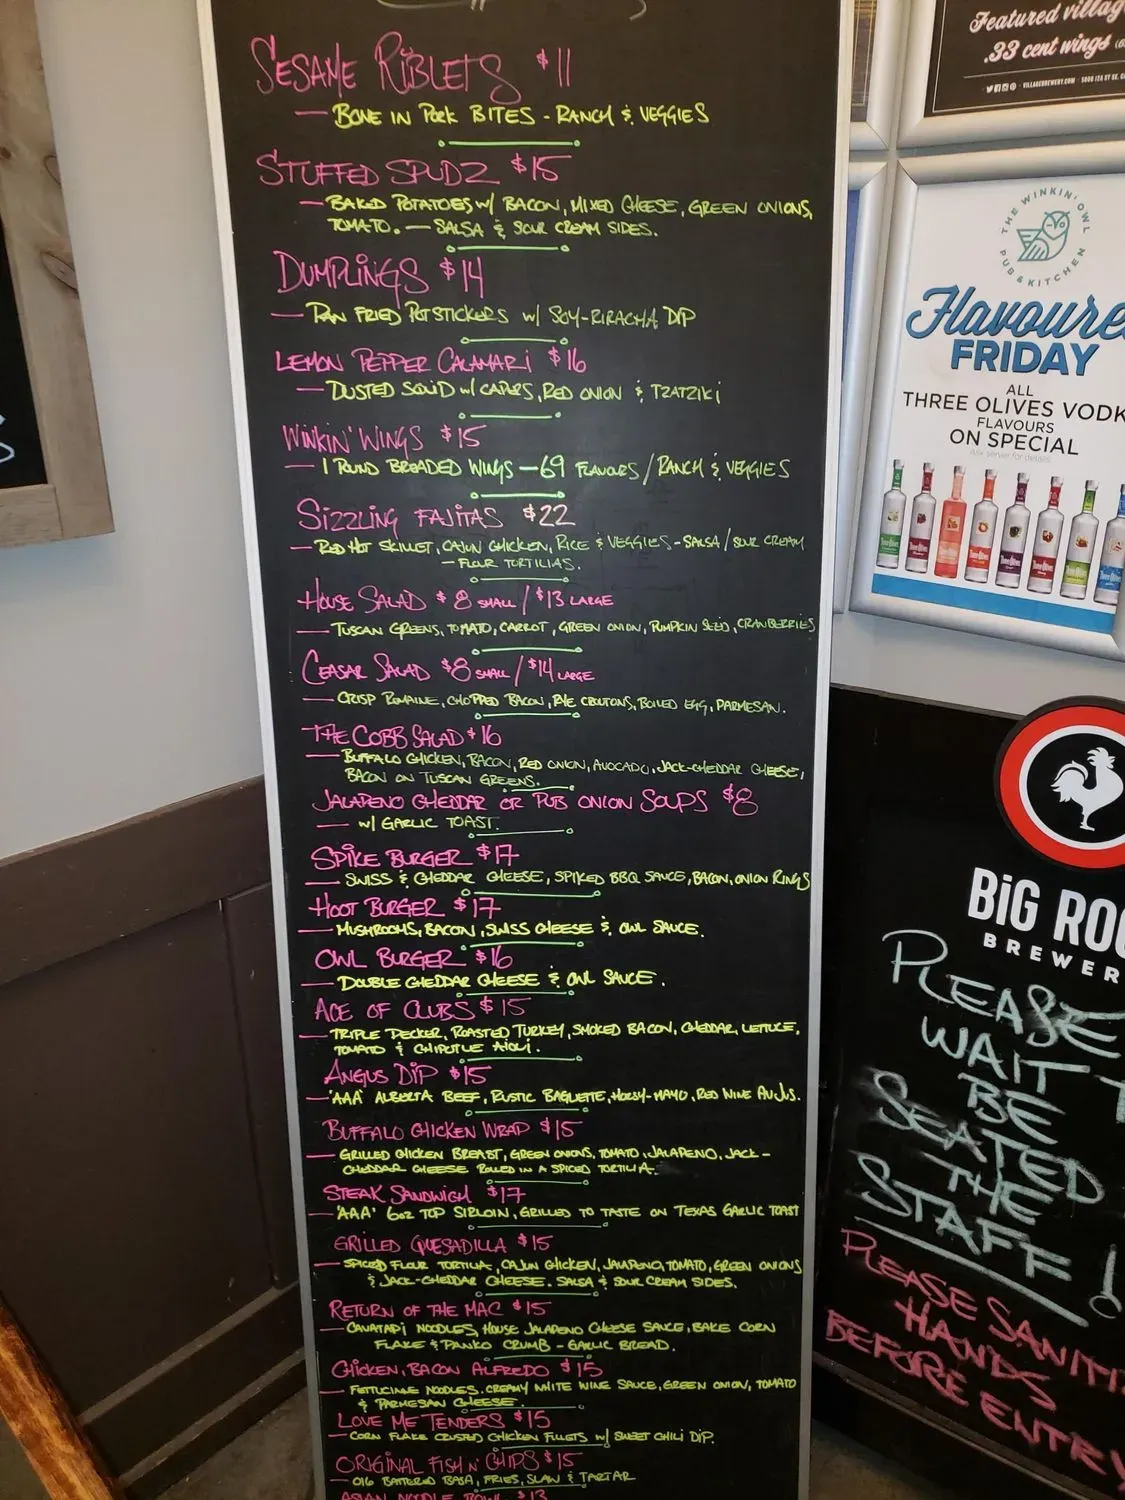 SESAME RIBLETS $11
— BONE IN PORK BITES - RANCH & VEGGIES
STUFFED SPUDZ $15
— BAKED POTATOES W/ BACON, MIXED CHEESE, GREEN ONIONS,
TOMATO. — SALSA & SOUR CREAM SIDES.
DUMPLINGS $14
— PAN FRIED POTSTICKERS W/ SOY-RIRACHA DIP
LEMON PEPPER CALAMARI $16
— DUSTED SQUID W/ CAPERS, RED ONION & TZATZIKI
WINKIN' WINGS $15
— 1 POUND BREADED WINGS — 69 FLAVOURS / RANCH & VEGGIES
SIZZLING FAJITAS $22
— RED HOT SKILLET, CAJUN CHICKEN, RICE & VEGGIES - SALSA / SOUR CREAM
— FLOUR TORTILIAS.
HOUSE SALAD $8 SMALL / $13 LARGE
— TUSCAN GREENS, TOMATO, CARROT, GREEN ONION, PUMPKIN SEED, CRANBERRIES
CEASAR SALAD $8 SMALL / $14 LARGE
— CRISP ROMAINE, CHOPPED BACON, RYE CROUTONS, BOILED EGG, PARMESAN.
THE COBB SALAD $16
— BUFFALO CHICKEN, BACON, RED ONION, AVOCADO, JACK-CHEDDAR CHEESE,
BACON ON TUSCAN GREENS.
JALAPENO CHEDDAR OR PUB ONION SOUPS $8
— W/ GARLIC TOAST.
SPIKE BURGER $17
— SWISS & CHEDDAR CHEESE, SPIKED BBQ SAUCE, BACON, ONION RINGS
HOOT BURGER $17
— MUSHROOMS, BACON, SWISS CHEESE & OWL SAUCE.
OWL BURGER $16
— DOUBLE CHEDDAR CHEESE & OWL SAUCE.
ACE OF CLUBS $15
— TRIPLE DECKER, ROASTED TURKEY, SMOKED BACON, CHEDDAR, LETTUCE,
TOMATO & CHIPOTLE AIOLI.
ANGUS DIP $15
— 'AAA' ALBERTA BEEF, RUSTIC BAGUETTE, HORSY-MAYO, RED WINE AU JUS.
BUFFALO CHICKEN WRAP $15
— GRILLED CHICKEN BREAST, GREEN ONIONS, TOMATO, JALAPENO, JACK-
CHEDDAR CHEESE ROLLED IN A SPICED TORTILIA.
STEAK SANDWICH $17
— 'AAA' 6oz TOP SIRLOIN, GRILLED TO TASTE ON TEXAS GARLIC TOAST
GRILLED QUESADILLA $15
— SPICED FLOUR TORTILIA, CAJUN CHICKEN, JALAPENO, TOMATO, GREEN ONIONS
& JACK-CHEDDAR CHEESE. SALSA & SOUR CREAM SIDES.
RETURN OF THE MAC $15
— CAVATAPI NOODLES, HOUSE JALAPENO CHEESE SAUCE, BAKE CORN
FLAKE & PANKO CRUMB - GARLIC BREAD.
CHICKEN, BACON ALFREDO $15
— FETTUCINE NOODLES, CREAMY WHITE WINE SAUCE, GREEN ONION, TOMATO
& PARMESAN CHEESE.
LOVE ME TENDERS $15
— CORN FLAKE CRUSTED CHICKEN FILLETS W/ SWEET CHILI DIP.
ORIGINAL FISH N' CHIPS $15
— BATTERED BASA, FRIES, SLAW & TARTAR
ASIAN NOODLE BOWL $13
Featured villag
.33 cent wings
VILLAGEBREWERY.COM
THE WINKIN' OWL
PUB & KITCHEN
Flavoure
FRIDAY
ALL
THREE OLIVES VODK
FLAVOURS
ON SPECIAL
Ask server for details
BiG ROC
BREWER
PLEASE
WAIT T
BE
SEATED
THE
STAFF!
PLEASE SANITI
HANDS
BEFORE ENTRY